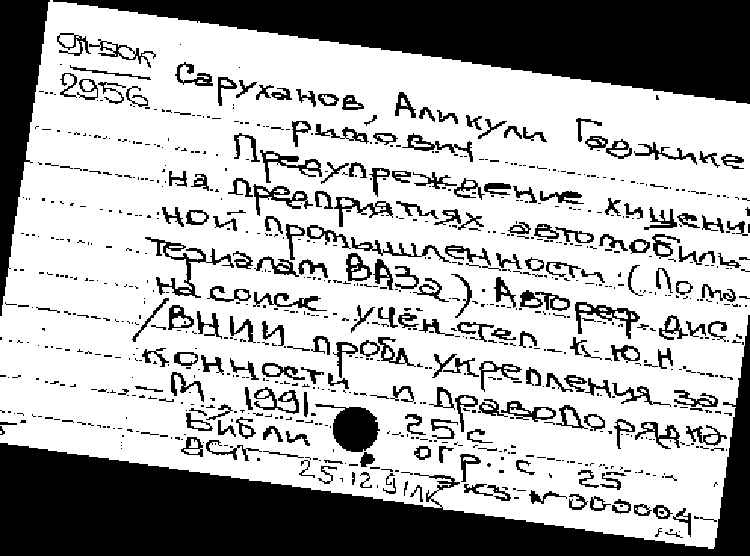 2956
Саруханов, Аликули Гаджике
римович
Предупреждение хищени
на предприятиях автомобиль-
ной промышленности. (По ма-
териалам ВАЗа). Автореф. дис.
на соиск учён степ к.ю.н.
/ВНИИ пробл укрепления за-
конности и правопорядка
— М., 1991. — 25 с.
Библиогр.: с. 25
Дсп. 25.12.91 ЛК Экз. № 000004